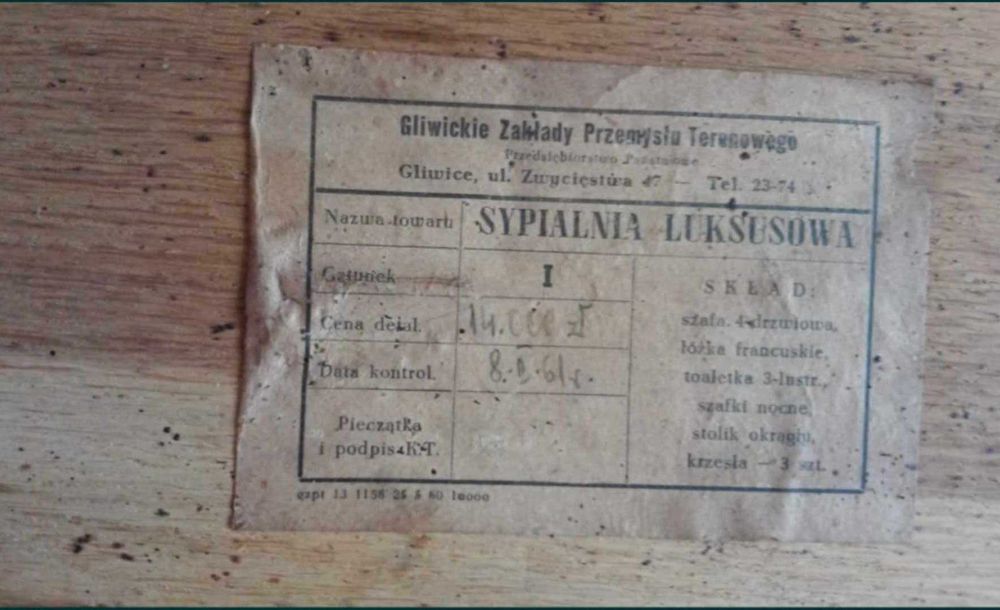 Gliwickie Zakłady Przemysłu Terenowego
Przedsiębiorstwo Państwowe
Gliwice, ul. Zwycięstwa 47 — Tel. 23-74
Nazwa towaru SYPIALNIA LUKSUSOWA
Gatunek I
Cena detal. 14.000 zł
Data kontrol. 8. 61 r.
Pieczątka
i podpis K.T.
SKŁAD:
szafa 4-drzwiowa,
łóżka francuskie,
toaletka 3-lustr.,
szafki nocne,
stolik okrągły,
krzesła — 3 szt.
13 1156 25 5 60 10000